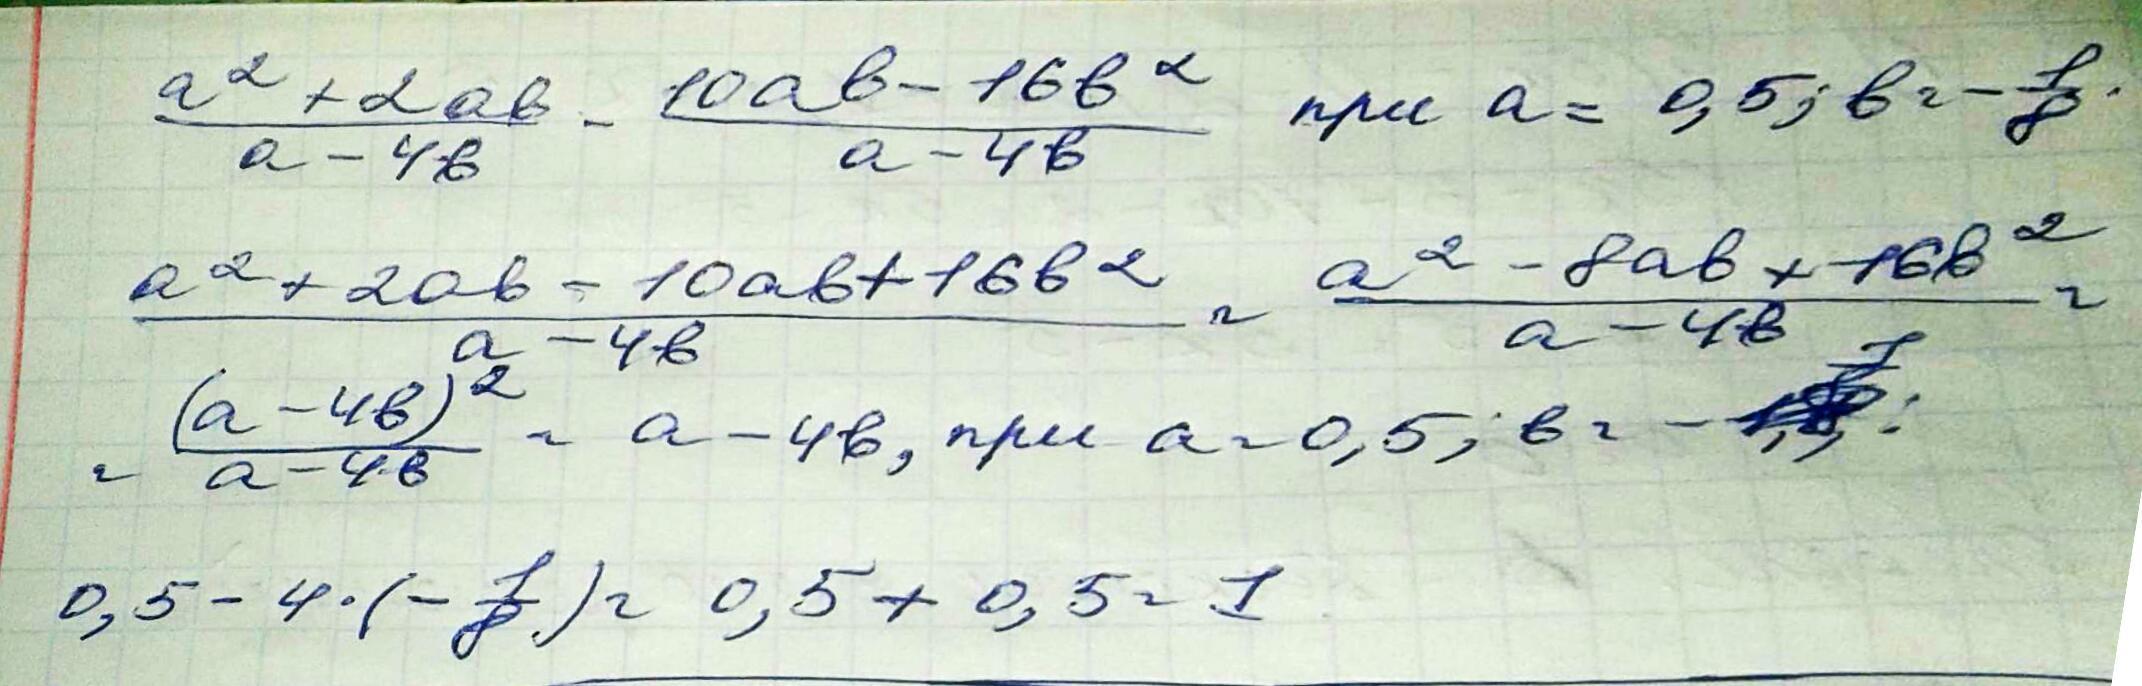 a² + 2ab / a - 4b - 10ab - 16b² / a - 4b при a = 0,5; b = - 1/8.
a² + 2ab - 10ab + 16b² / a - 4b = a² - 8ab + 16b² / a - 4b =
= (a - 4b)² / a - 4b = a - 4b, при a = 0,5; b = - 1/8:
0,5 - 4 · (- 1/8) = 0,5 + 0,5 = 1